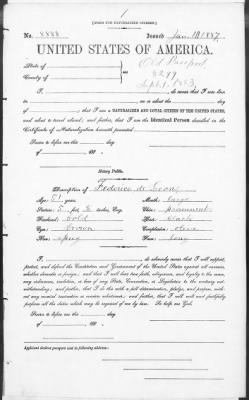 1
[FORM FOR NATURALIZED CITIZEN.]
No. 4888 Issued Jan. 10 1887
UNITED STATES OF AMERICA.
State of
County of
Old Passport
4299
Sept. 1. 1883
I, do swear that I was born
in on or about the day
of , that I am a NATURALIZED AND LOYAL CITIZEN OF THE UNITED STATES,
and about to travel abroad; and further, that I am the Identical Person described in the
Certificate of Naturalization herewith presented.
Sworn to before me this day
of 188
Notary Public.
Description of Federico de Leon
Age: 51 years. Mouth: large
Stature: 5 feet, 6 inches, Eng. Chin: prominent
Forehead: bold Hair: black
Eyes: brown Complexion: olive
Nose: Face: long
I, , do solemnly swear that I will support,
protect, and defend the Constitution and Government of the United States against all enemies,
whether domestic or foreign; and that I will bear true faith, allegiance, and loyalty to the same,
any ordinance, resolution, or law of any State, Convention, or Legislature to the contrary not-
withstanding; and further, that I do this with a full determination, pledge, and purpose, with-
out any mental reservation or evasion whatsoever; and further, that I will well and faithfully
perform all the duties which may be required of me by law. So help me God.
Sworn to before me this day
of , 188
Applicant desires passport sent to following address: